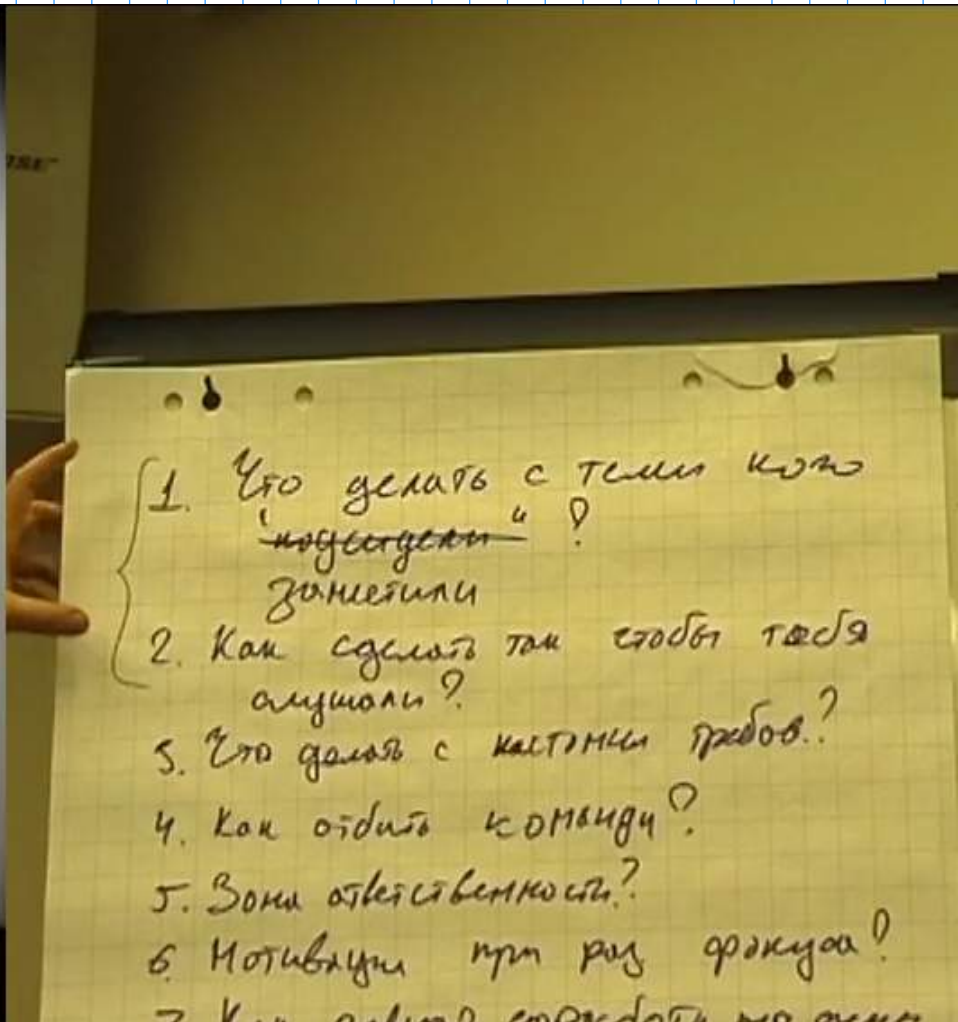 USE"
1. Что делать с теми кого
"подсидели" ?
заметили
2. Как сделать так чтобы тебя
слушали?
3. Что делать с
4. Как отбить команду?
5. Зона ответственности?
6. Мотивации при раз фокуса?
7. Как